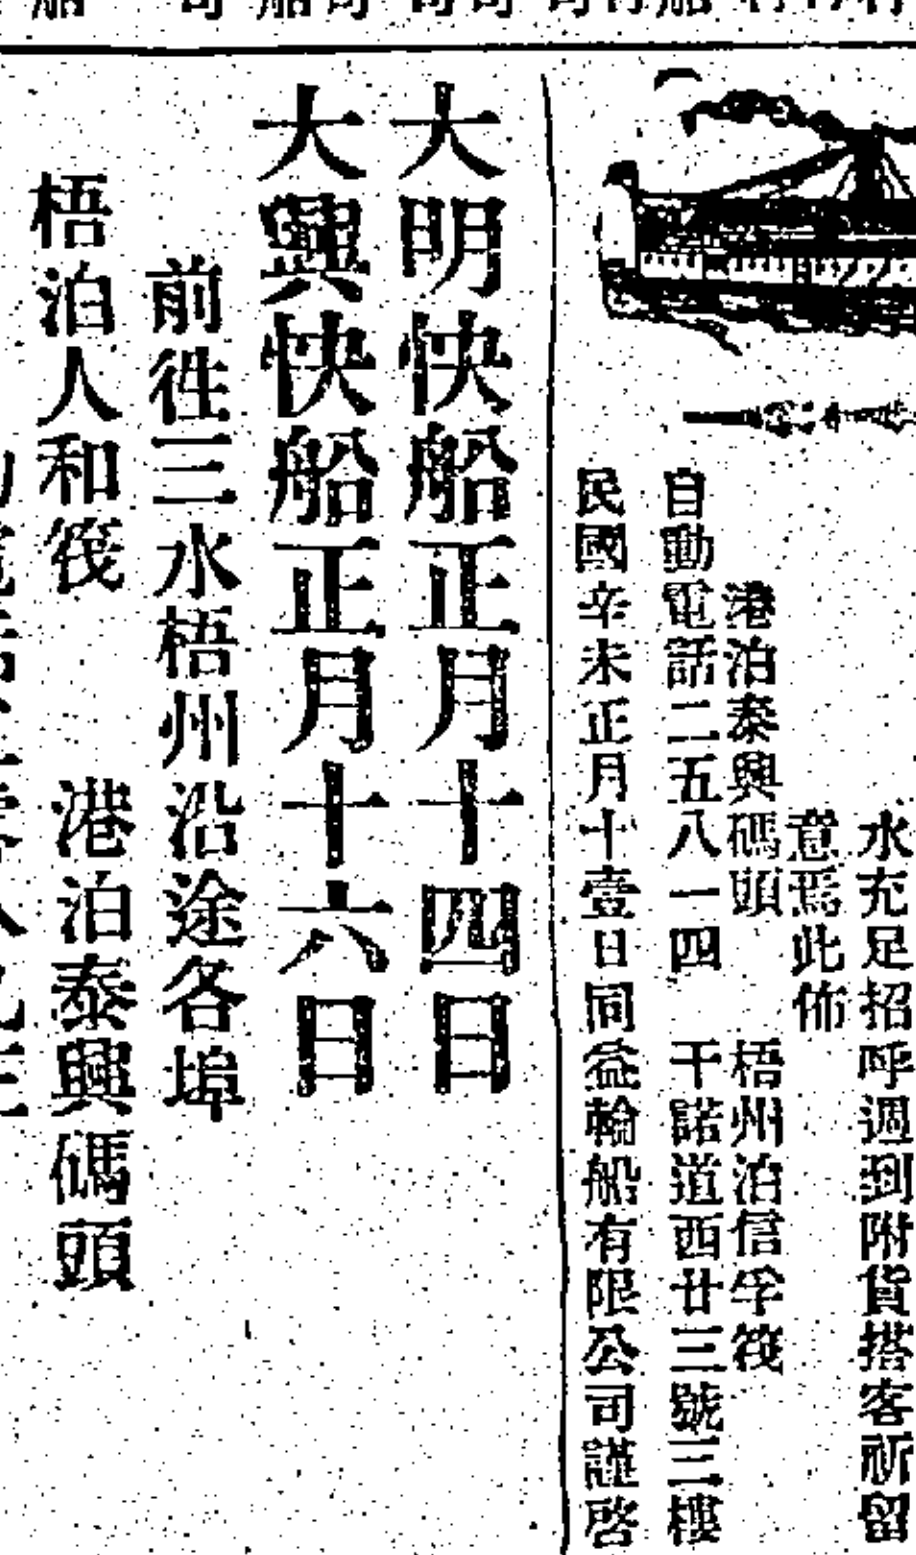 水充足招呼週到附貨搭客祈留
意焉此佈
港泊泰興碼頭　梧州泊信孚筏
自動電話二五八一四　干諾道西廿三號三樓
民國辛未正月十壹日同益輪船有限公司謹啓
大明快船正月十四日
大興快船正月十六日
前往三水梧州沿途各埠
梧泊人和筏　港泊泰興碼頭